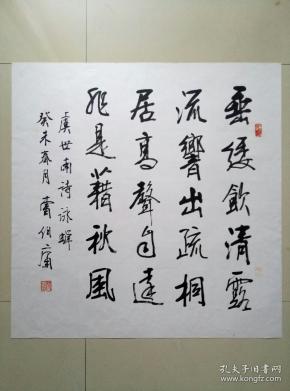 垂緌飲清露
流響出疏桐
居高聲自遠
非是藉秋風
虞世南詩詠蟬
癸未春月
孔夫子旧书网